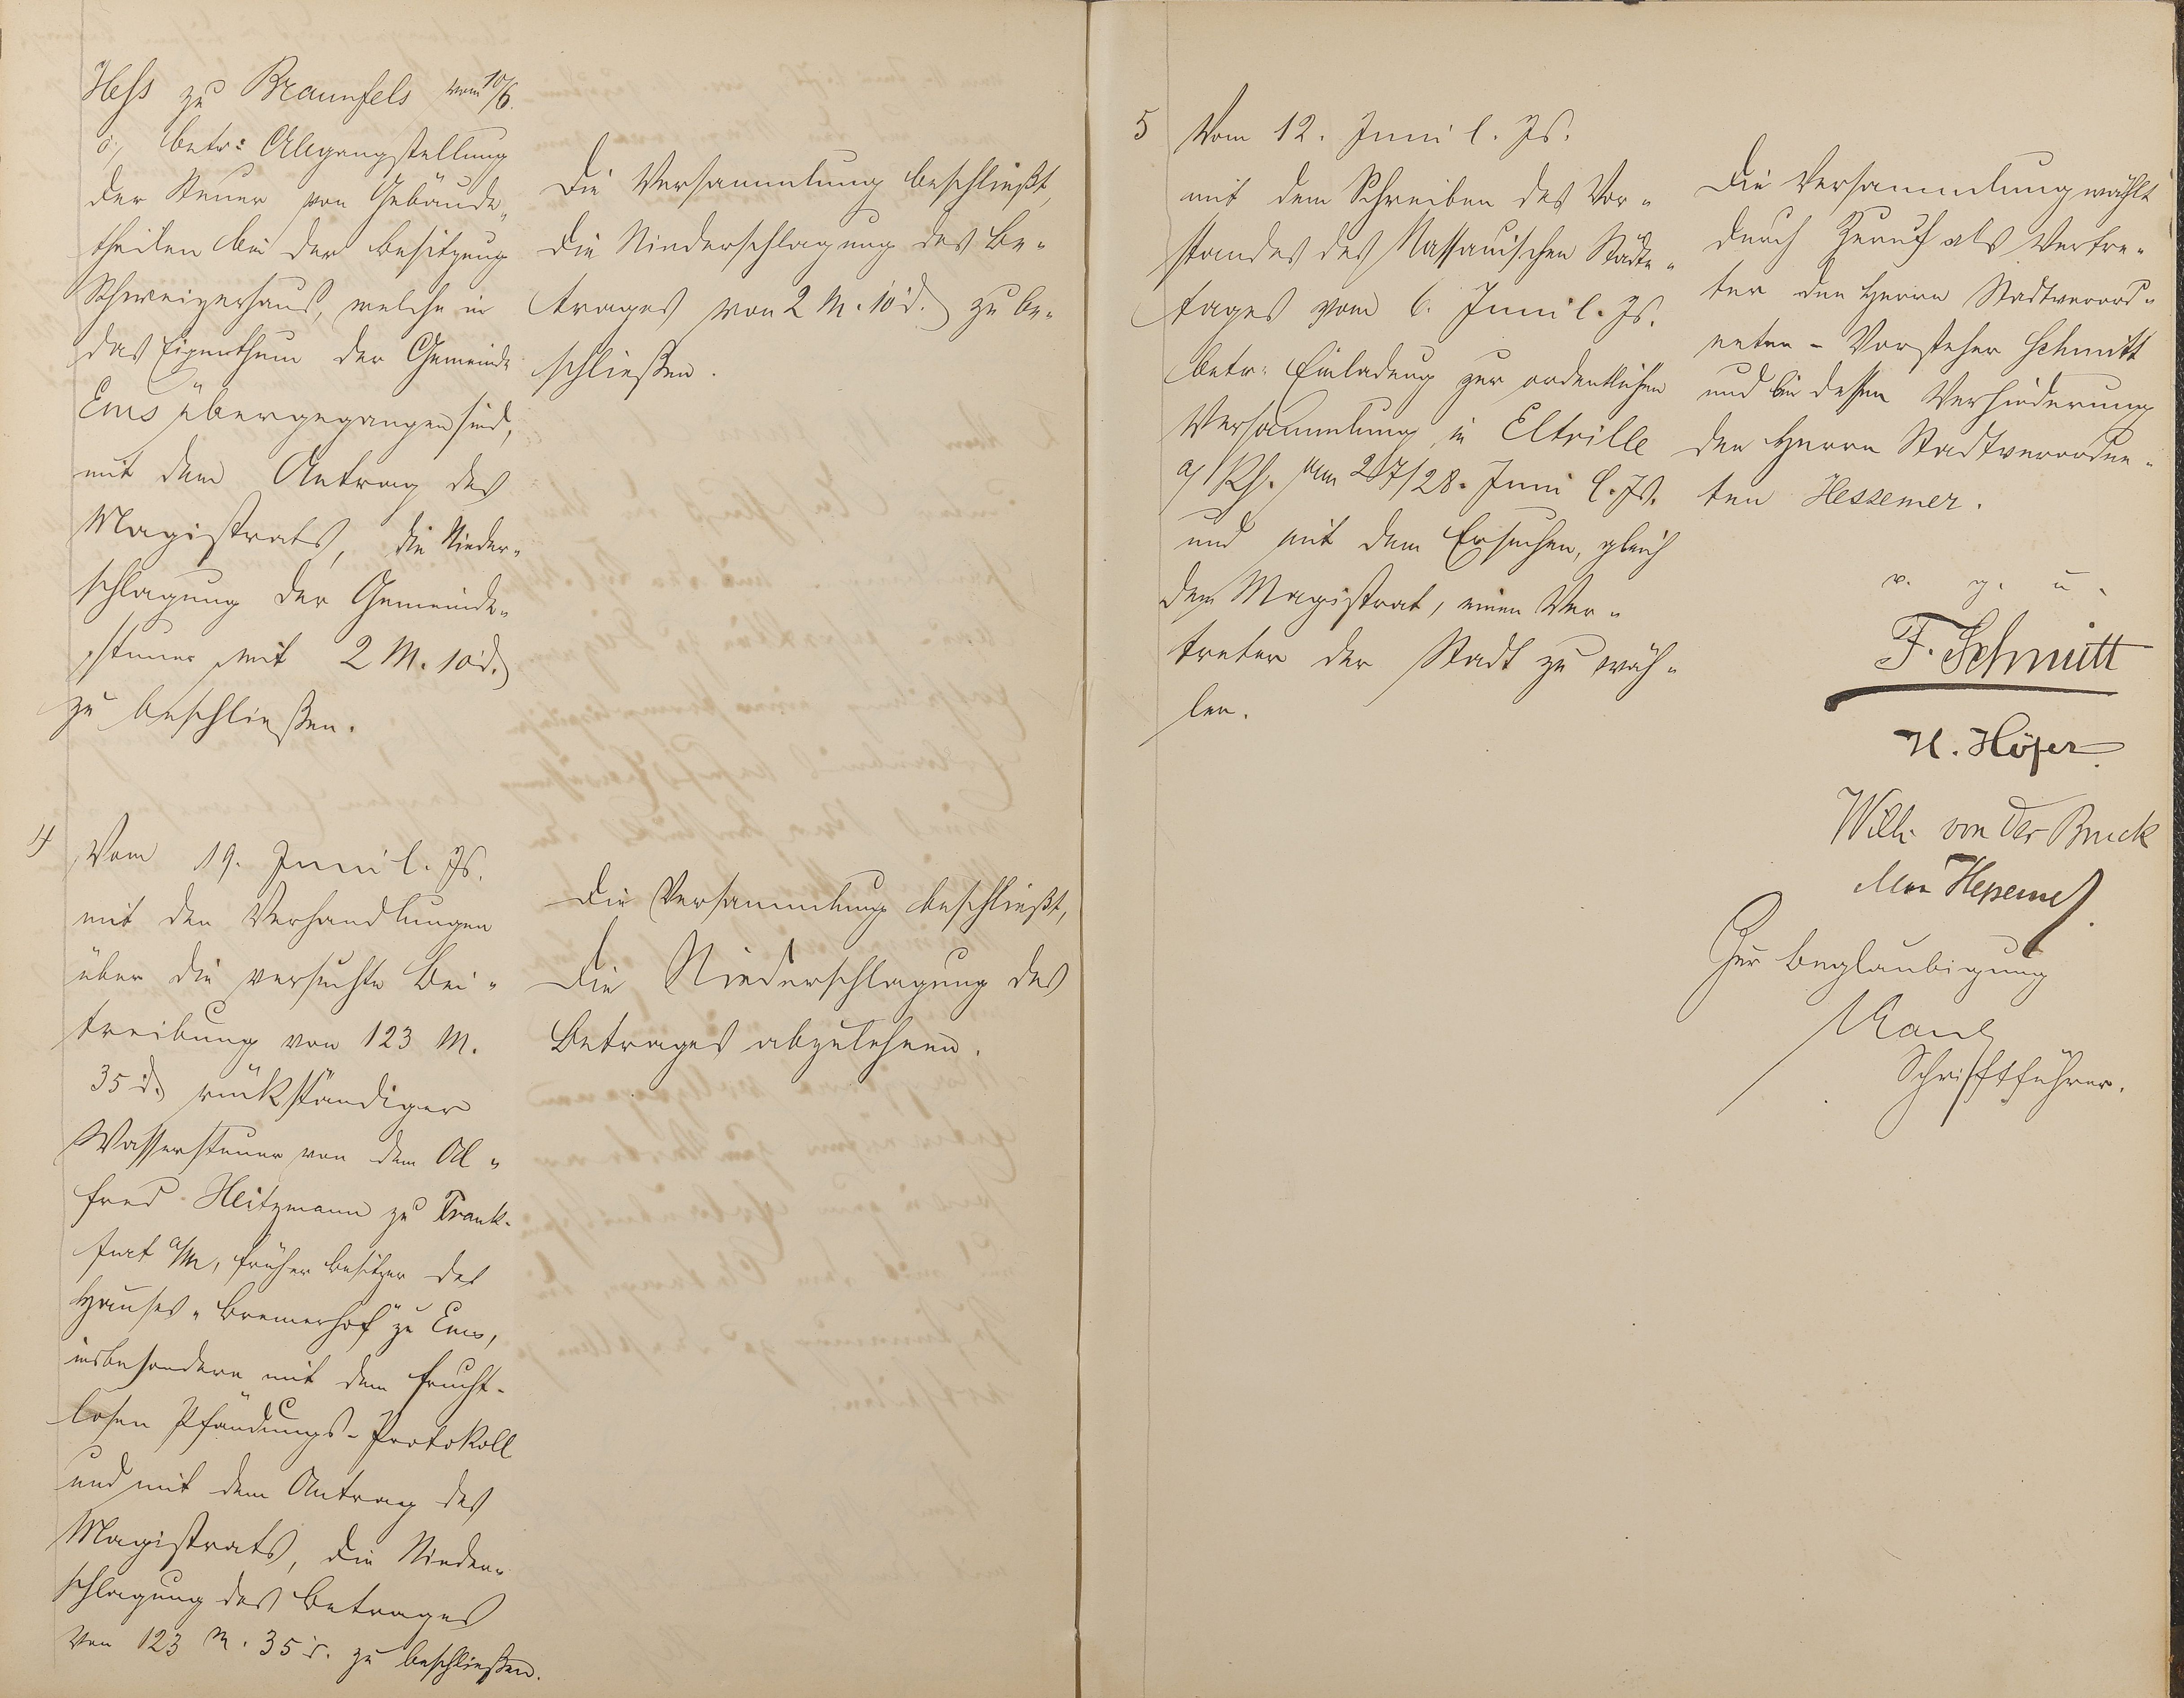 Hess zu Braunfels vom 10/6.
betr: Abgangstellung
der Steuer von Gebäude-
theilen bei der Besitzung
Schweizerhaus, welche in
das Eigenthum der Gemeinde
Ems übergegangen sind,
mit dem Antrag des
Magistrats, die Nieder-
schlagung der Gemeinde-
steuer mit 2 M. 10 d.
zu beschließen.
Die Versammlung beschließt,
die Niederschlagung des Be-
trages von 2 M. 10 d. zu be-
schließen.
4 Vom 19. Juni l. Js.
mit den Verhandlungen
über die versuchte Bei-
treibung von 123 M.
35 d. rückständiger
Wassersteuer von dem Al-
fred Heitzmann zu Frank-
furt a/M, früher Besitzer des
Hauses "Bremerhof" zu Ems,
insbesondere mit dem frucht-
losen Pfändungs-Protokoll
und mit dem Antrag des
Magistrats, die Nieder-
schlagung des Betrages
von 123 M. 35 d. zu beschließen.
Die Versammlung beschließt,
die Niederschlagung des
Betrages abzulehnen.
5 Vom 12. Juni l. Js.
mit dem Schreiben des Vor-
standes des Nassauischen Städte-
tages vom 6. Juni l. Js.
betr: Einladung zur ordentlichen
Versammlung in Eltville
a/Rh. am 27/28. Juni l. Js.
und mit dem Ersuchen, gleich
dem Magistrat, einen Ver-
treter der Stadt zu wäh-
len.
Die Versammlung wählt
durch Zuruf als Vertre-
ter den Herrn Stadtverord-
neten-Vorsteher Schmitt
und bei dessen Verhinderung
den Herrn Stadtverordne-
ten Hessemer.
v. g. u.
F. Schmitt
H. Höfer
Willi von der Bruck
Hessemer
Zur Beglaubigung
Schriftführer.